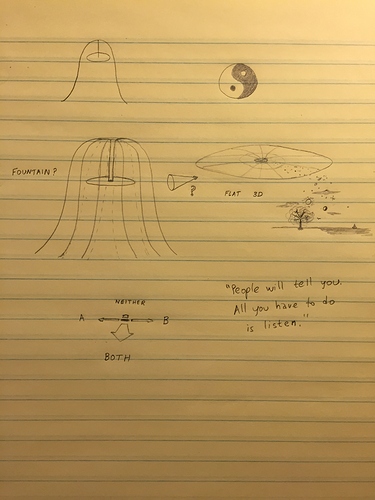 FOUNTAIN?
?
FLAT 3D
NEITHER
A
B
BOTH
"People will tell you.
All you have to do
is listen."